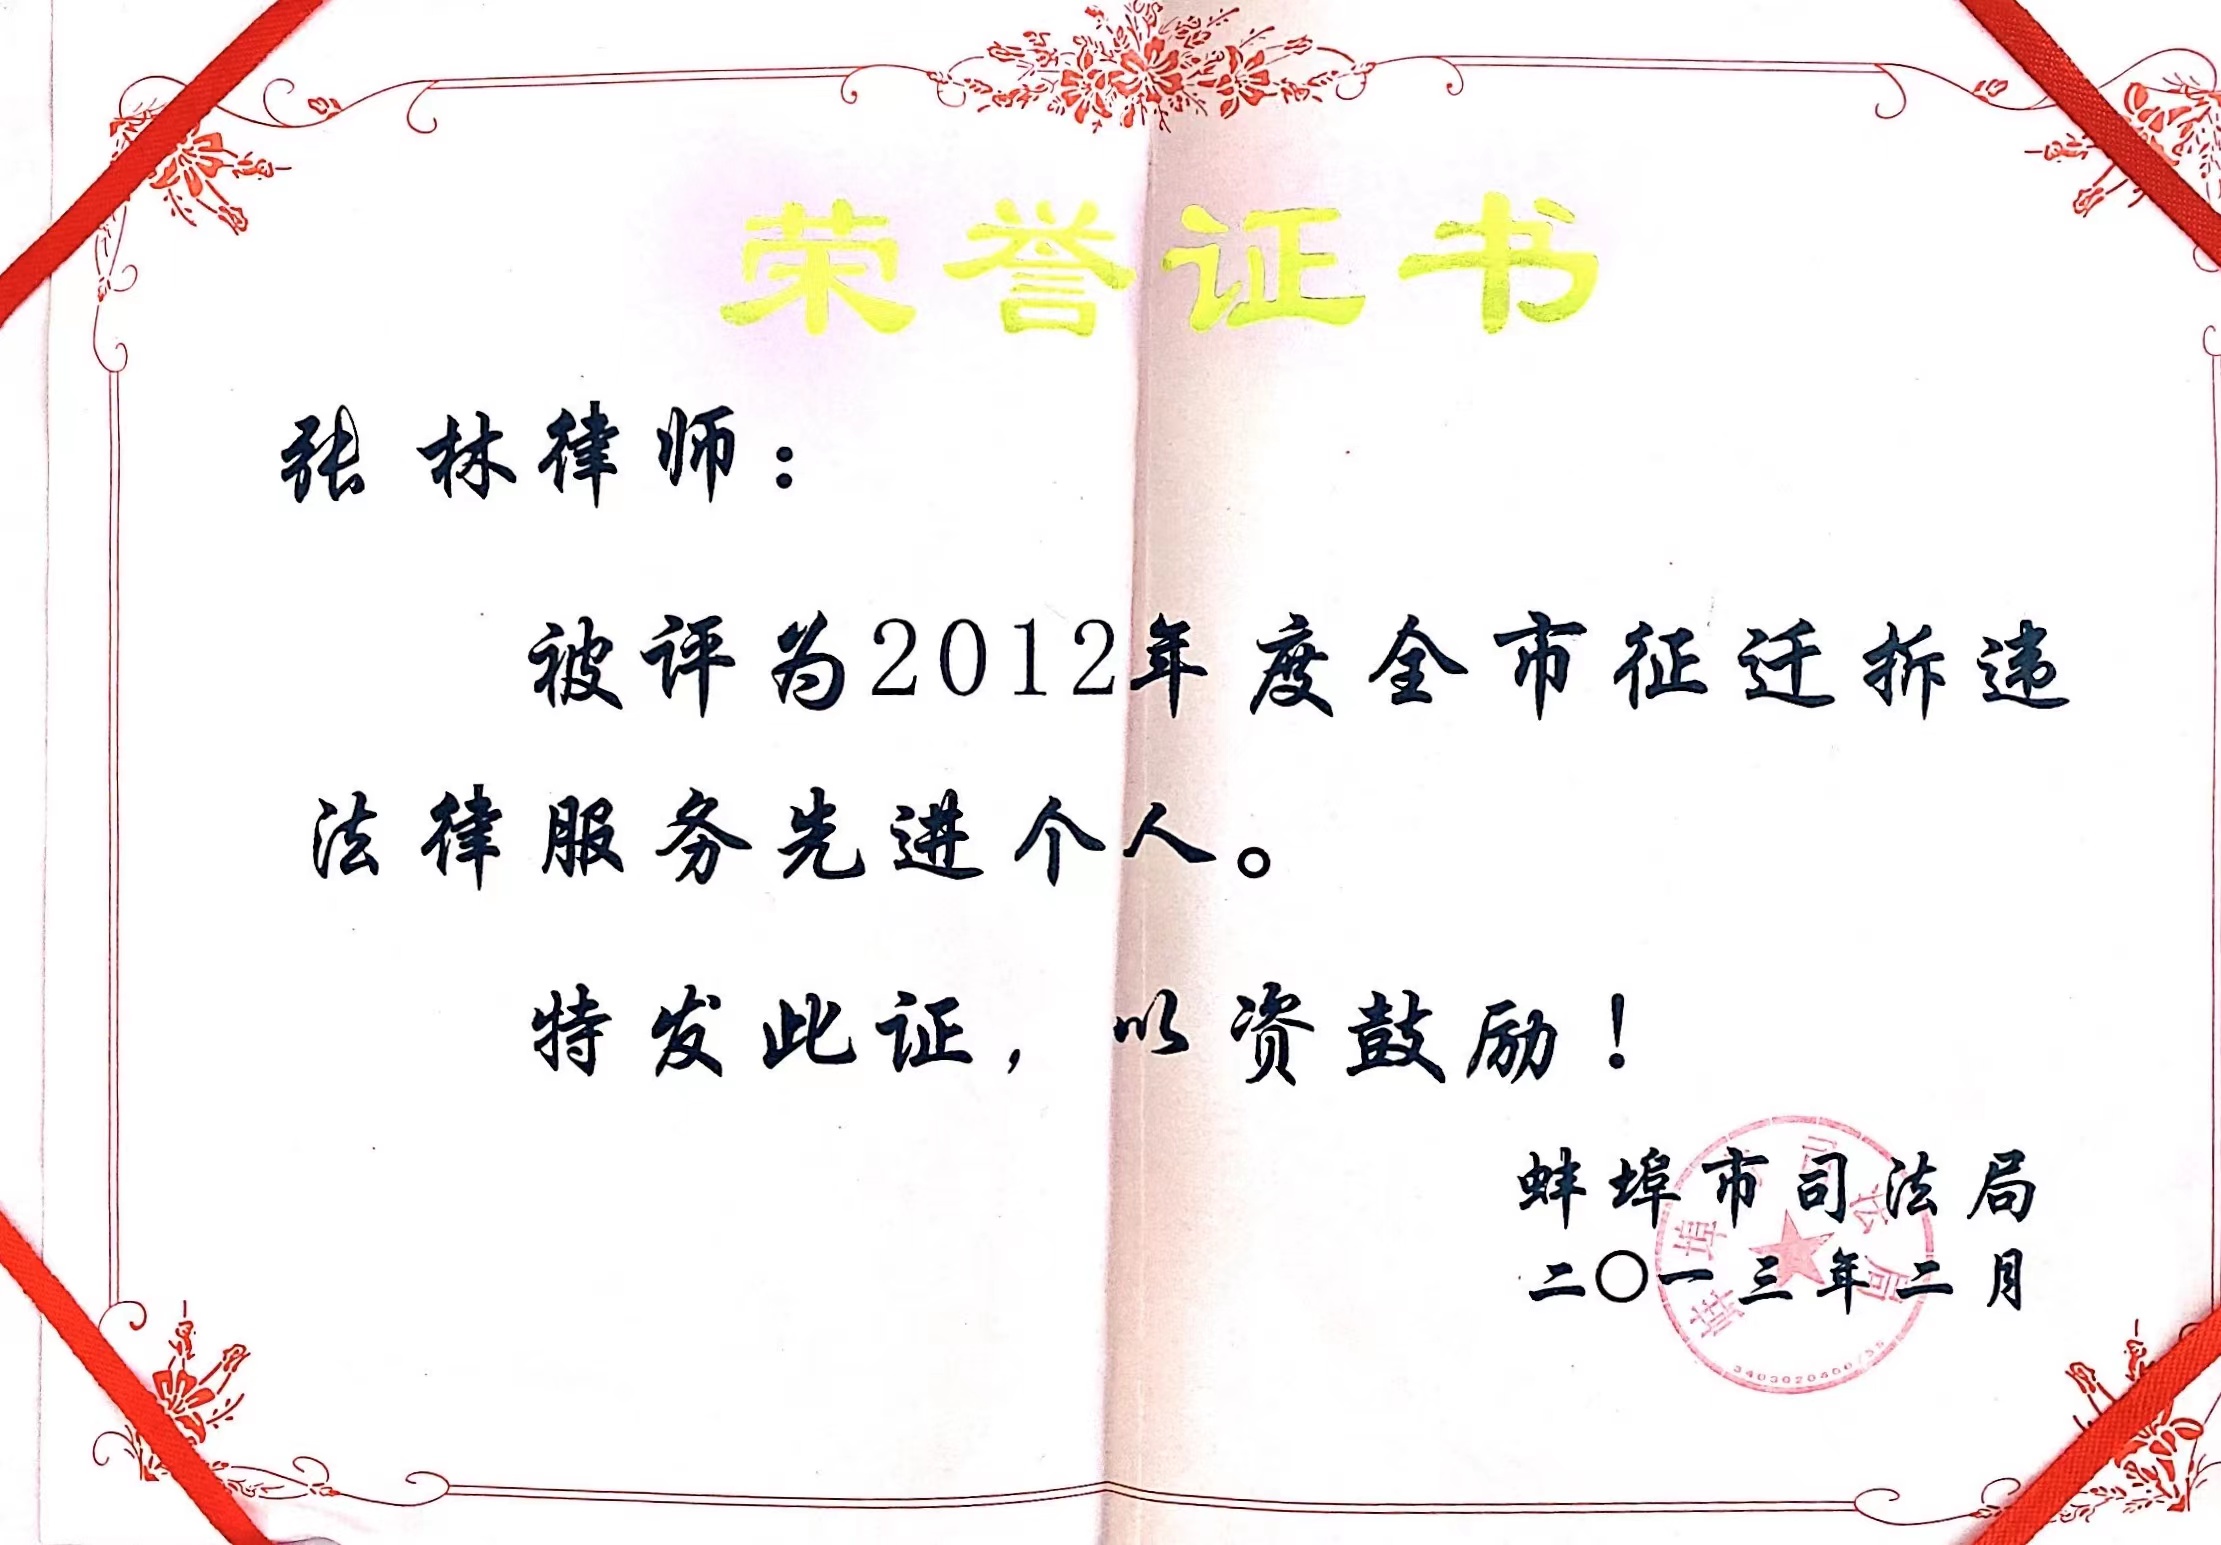 荣誉证书
张林律师：
被评为2012年度全市征迁拆违
法律服务先进个人。
特发此证，以资鼓励！
蚌埠市司法局
二〇一三年二月